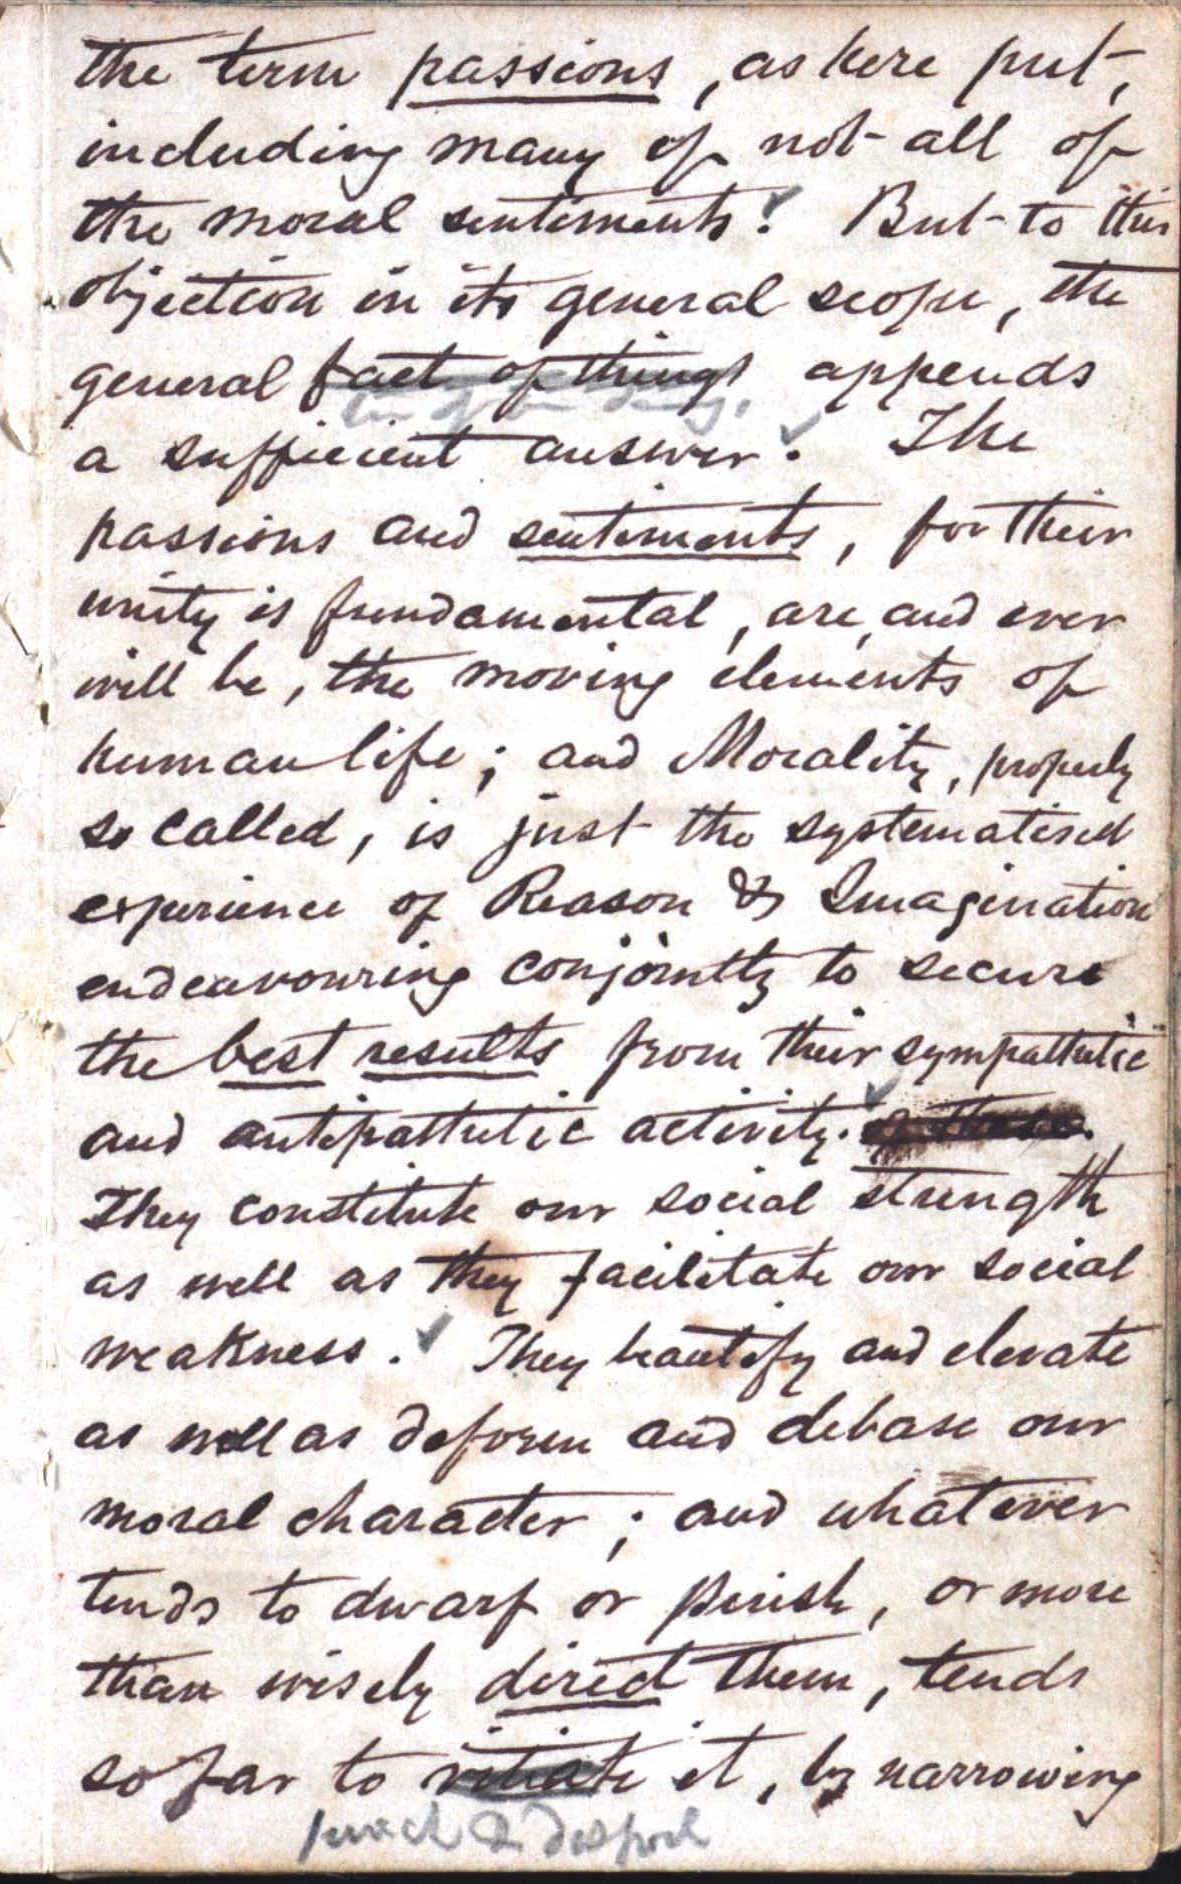 the term passions, as here put,
including many if not all of
the moral sentiments. But to this
objection in its general scope, the
general fact of things appends
a sufficient answer. The
passions and sentiments, for their
unity is fundamental, are, and ever
will be, the moving elements of
human life; and Morality, properly
so called, is just the systematised
experience of Reason & Imagination
endeavouring conjointly to secure
the best results from their sympathetic
and antipathetic activity. of these.
They constitute our social strength
as well as they facilitate our social
weakness. They beautify and elevate
as well as deform and debase our
moral character; and whatever
tends to dwarf or perish, or more
than wisely direct them, tends
so far to vitiate it, by narrowing
& despoil